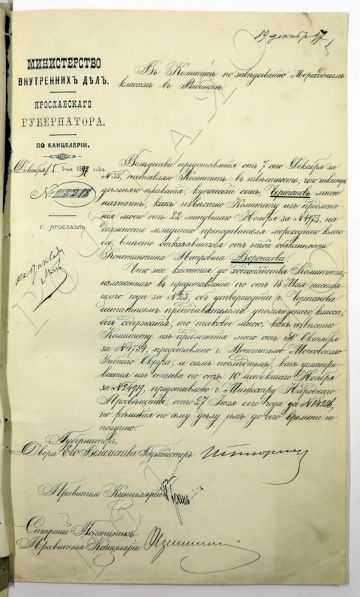 19 декабря 97 г.
МИНИСТЕРСТВО
ВНУТРЕННИХЪ ДѢЛЪ.
ЯРОСЛАВСКАГО
ГУБЕРНАТОРА.
ПО КАНЦЕЛЯРІИ.
Декабря 15 дня 1897 года.
№ 5218
Г. ЯРОСЛАВЛЬ.
Въ Комитетъ по завѣдыванію Мореходнымъ
классомъ въ Рыбинскѣ.
Вслѣдствіе представленія отъ 7 сего Декабря за
№ 55, поставляю Комитетъ въ извѣстность, что
дальняго плаванія, купеческій сынъ, Черепановъ мною
назначенъ, какъ извѣстно Комитету изъ предложе-
нія моего отъ 22 минувшаго Ноября за № 4973, на
должность младшаго преподавателя мореходнаго класса,
вмѣсто отказавшагося отъ этой обязанности
Константина Воронцова.
Что же касается до ходатайства Комитета,
изложеннаго въ представленіи его отъ 16 Мая настоя-
щаго года за № 25, объ утвержденіи г. Черепанова
штатнымъ преподавателемъ упомянутаго класса,
безъ содержанія, то таковое мною, какъ извѣстно
Комитету изъ предложенія моего отъ 30 Октября
за № 4734, представлено г. Попечителю Московскаго
Учебнаго Округа, а симъ послѣднимъ, какъ усматри-
вается изъ отзыва его отъ 10 истекшаго Ноября
за № 24919, представлено г. Министру Народнаго
Просвѣщенія, отъ 27 Іюля сего года за № 14216,
но рѣшенія по сему дѣлу имъ до сего времени не
получено.
Губернаторъ,
Двора Его Величества
Правитель Канцеляріи
Старшій Помощникъ
Правителя Канцеляріи